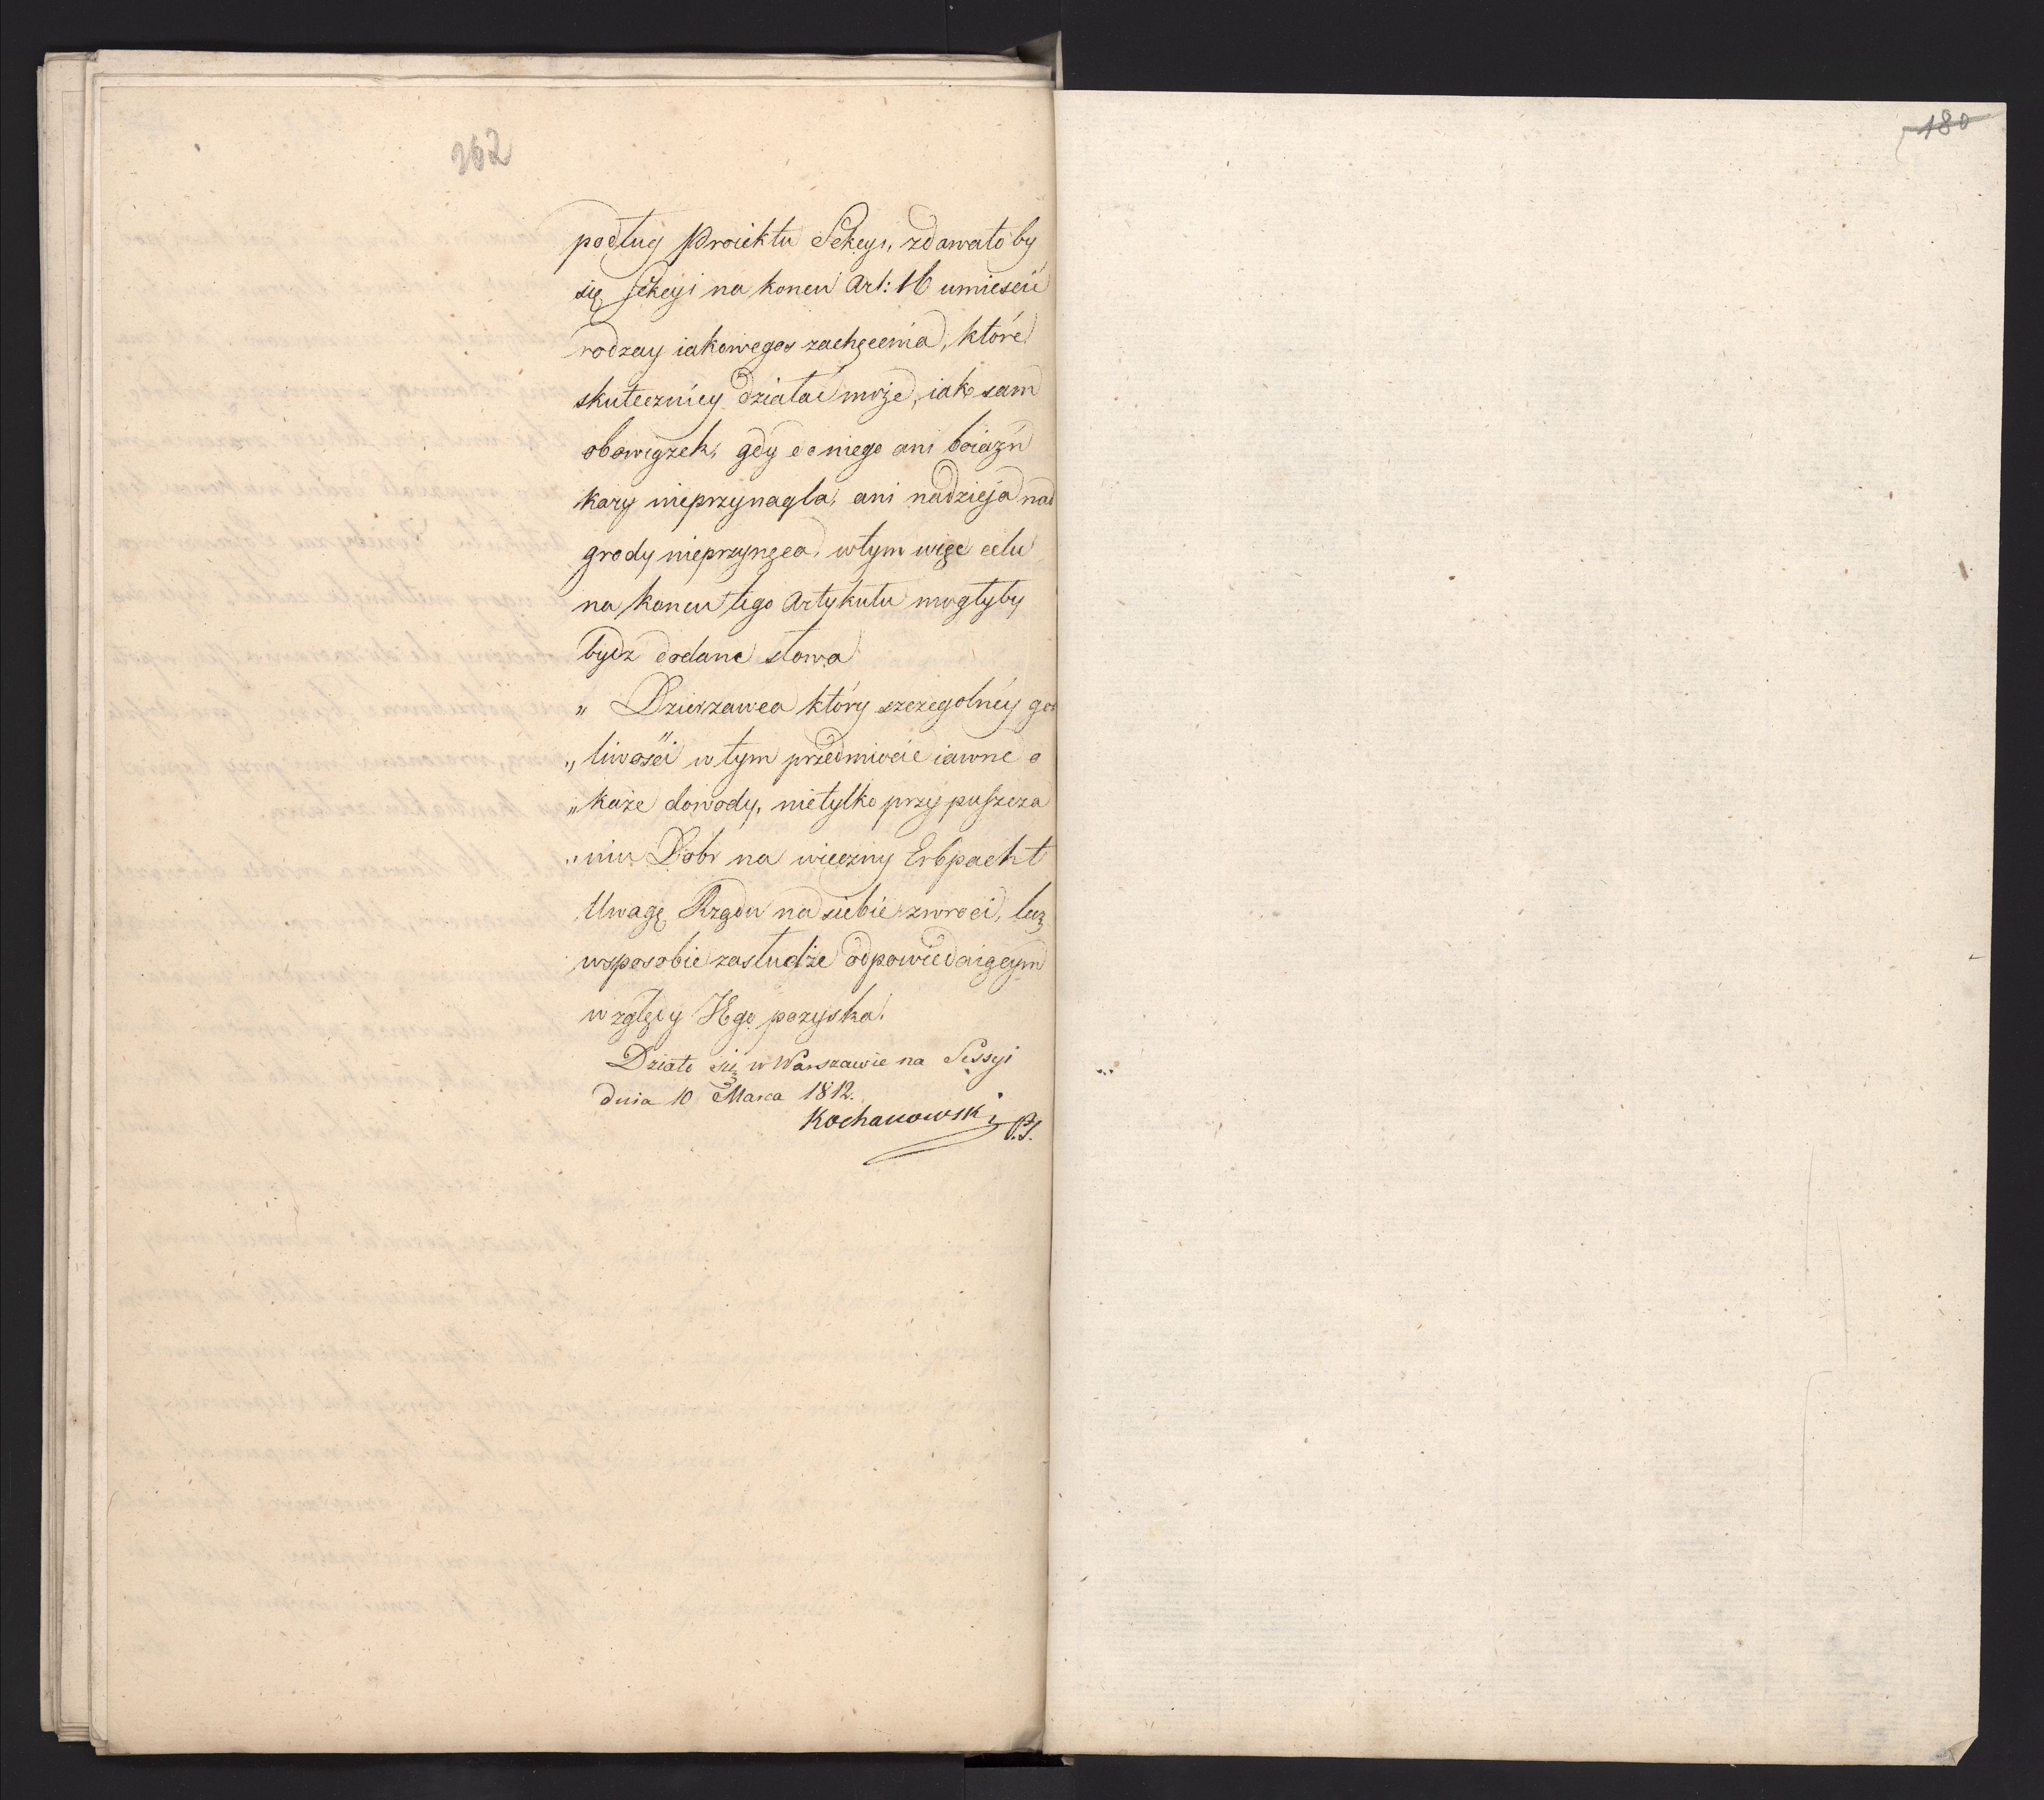 262
180
podług Proiektu Sekcyi, zdawało by
się Sekcyi na końcu Art: 16 umieścić
rodzay iakowegoś zachęcenia, które
skuteczniey działać może, iak sam
obowiązek, gdy do niego ani boiaźń
kary nieprzynagla, ani nadzieja nad
grody nieprzynęca, w tym więc celu
na końcu tego Artykułu mogłyby
bydz dodane słowa
„ Dzierzawca który szczegolnéy gor
„ liwości w tym przedmiocie iawne o
„ każe dowody, nietylko przy puszcza
„ niu Dobr na wieczny Erbpacht
Uwagę Rządu na siebie zwroci, lecz
wsposobie zasłudze odpowiedaiącym
względy Jego pozyska.
Działo się w Warszawie na Sessyi
dnia 10 Marca 1812.
Kochanowski